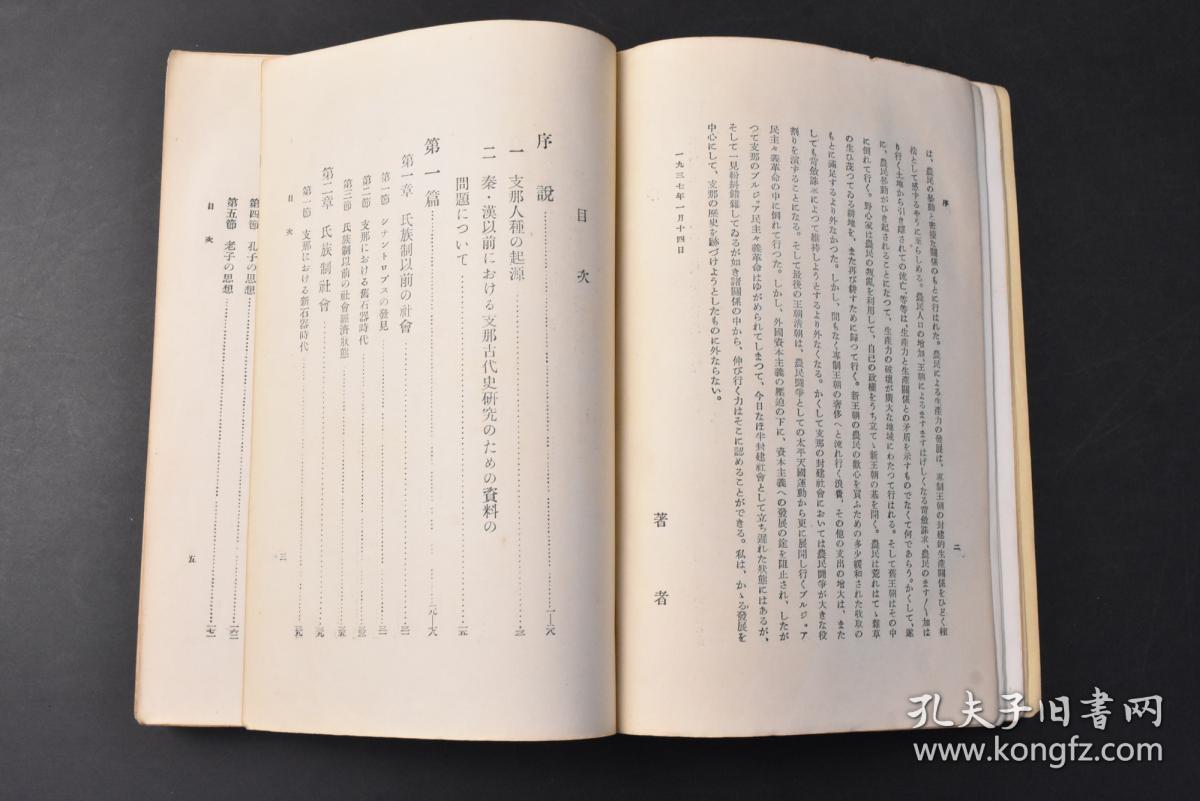 序
二
は、農民の移動と密接な關係のもとに行はれた。農民による生產力の發展は、專制王朝の封建的生產關係をひどく桎
梏として感ずるやうに至らしめる。農民人口の增加、王朝によるますますはげしくなる苛斂誅求、農民のます〱加は
り行く土地から引き離されての流亡、等等は、生產力と生產關係との矛盾を示すものでなくて何であらう。かくして、遂
に、農民移動がひき起されることになつて、生產力の破壞が廣大な地域にわたつて行はれる。そして舊王朝はその中
に倒れて行く。野心家は農民の叛亂を利用して、自己の政權をうち立てゝ新王朝の基を開く。農民は荒れはてゝ雜草
の生ひ茂つてゐる耕地を、また再び耕すために歸つて行く。新王朝の農民の歡心を買ふための多少緩和された收取の
もとに滿足するより外なかつた。しかし、間もなく專制王朝の奢侈へと流れ行く浪費、その他の支出の增大は、また
しても苛斂誅求によつて維持しようとするより外なくなる。かくして支那の封建社會においては農民鬪爭が大きな役
割りを演ずることになる。そして最後の王朝淸朝は、農民鬪爭としての太平天國運動から更に展開し行くブルジョア
民主々義革命の中に倒れて行つた。しかし、外國資本主義の壓迫の下に、資本主義への發展の途を阻止され、したが
つて支那のブルジョア民主々義革命はゆがめられてしまつて、今日なほ半封建社會として立ち遲れた狀態にはあるが、
そして一見紛糾錯雜してゐるが如き諸關係の中から、伸び行く力はそこに認めることができる。私は、かゝる發展を
中心にして、支那の歷史を跡づけようとしたものに外ならない。
一九三七年一月十四日
著者
目次
序說……一—二八
一 支那人種の起源……三
二 秦・漢以前における支那古代史硏究のための資料の
問題について……一五
第一篇……二九—六八
第一章 氏族制以前の社會……三一
第一節 シナントロプスの發見……三一
第二節 支那における舊石器時代……三三
第三節 氏族制以前の社會經濟狀態……三五
第二章 氏族制社會……三九
第一節 支那における新石器時代……三九
目次
三
第四節 孔子の思想……一六二
第五節 老子の思想……一七一
目次
五
孔夫子旧书网
www.kongfz.com